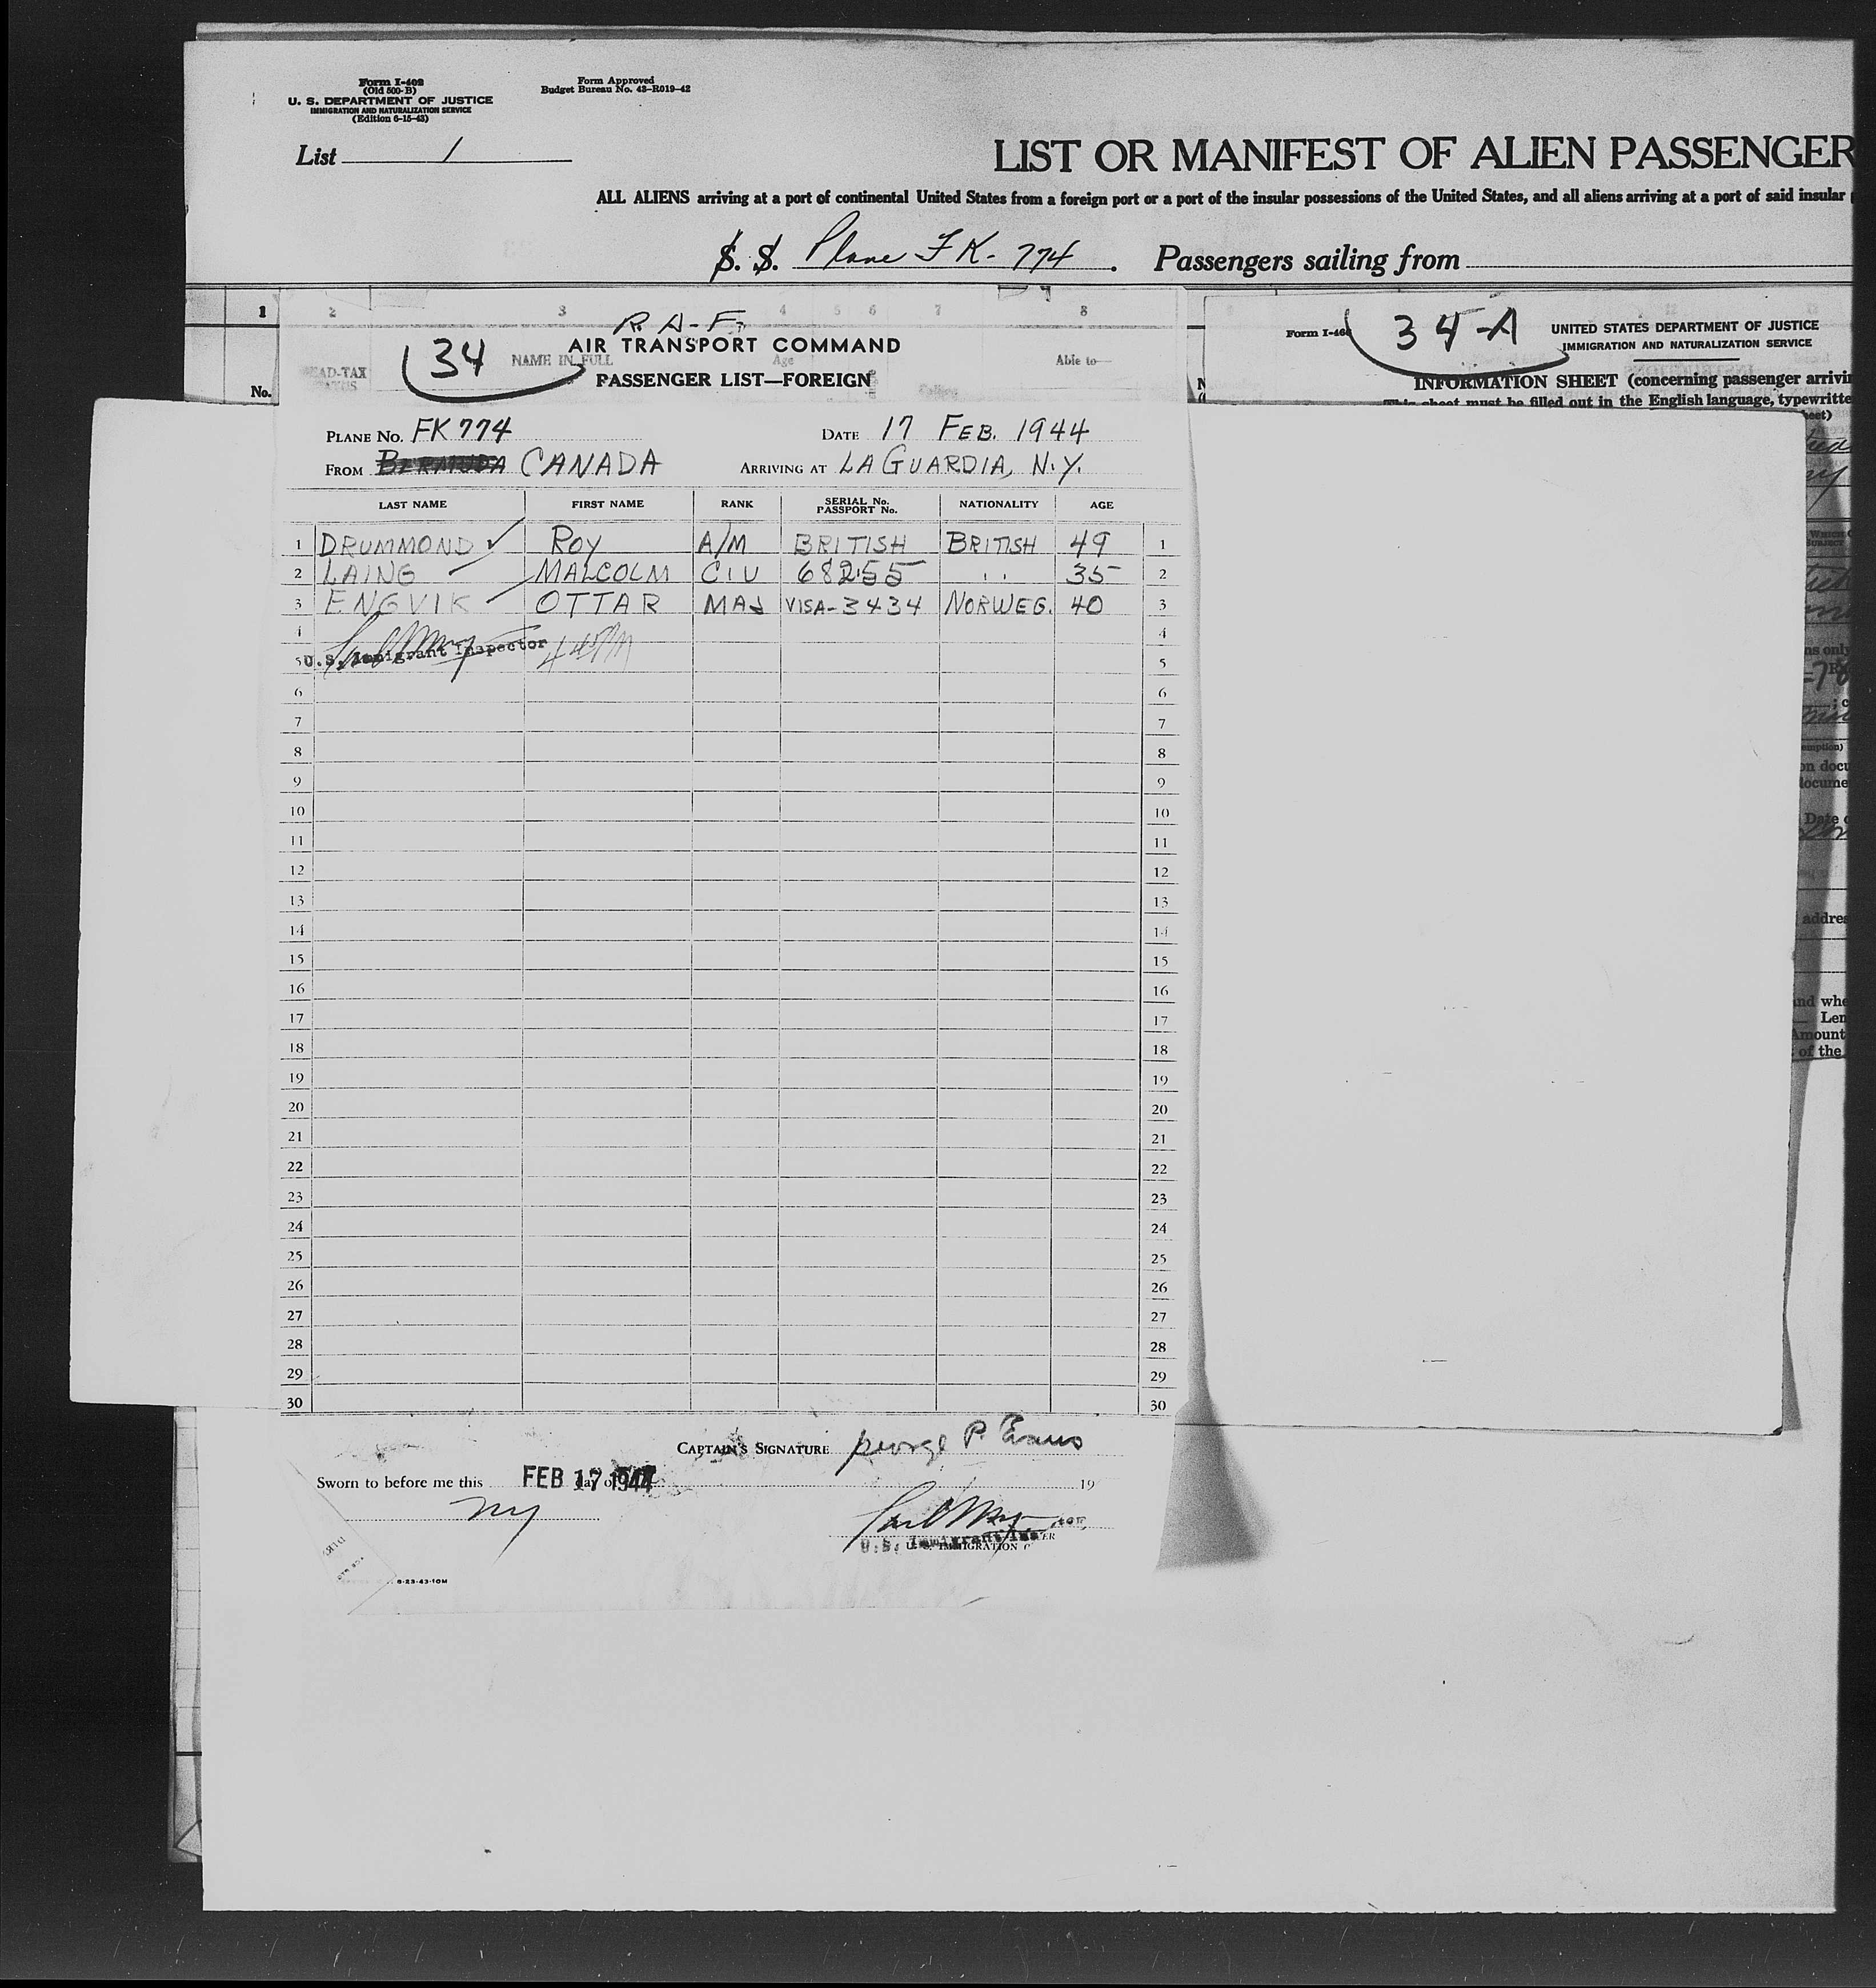 Form I-402
(Old 500-B)
U. S. DEPARTMENT OF JUSTICE
IMMIGRATION AND NATURALIZATION SERVICE
(Edition 6-15-43)
Form Approved
Budget Bureau No. 43-R019-42
List 1
LIST OR MANIFEST OF ALIEN PASSENGER
ALL ALIENS arriving at a port of continental United States from a foreign port or a port of the insular possessions of the United States, and all aliens arriving at a port of said insular
S. S. Plane FK-774. Passengers sailing from
1 2 3 4 5 6 7 8
R. A. F.
34 AIR TRANSPORT COMMAND
NAME IN FULL Age Able to
PASSENGER LIST—FOREIGN
No.
PLANE No. FK 774 DATE 17 FEB. 1944
FROM BERMUDA CANADA ARRIVING AT LA GUARDIA, N.Y.
LAST NAME FIRST NAME RANK SERIAL No. PASSPORT No. NATIONALITY AGE
1 DRUMMOND ✓ ROY A/M BRITISH BRITISH 49 1
2 LAING MALCOLM CIV 68255 " 35 2
3 ENGVIK OTTAR MAJ VISA-3434 NORWEG. 40 3
4 4
5 U.S. Immigrant Inspector 5
6 6
7 7
8 8
9 9
10 10
11 11
12 12
13 13
14 14
15 15
16 16
17 17
18 18
19 19
20 20
21 21
22 22
23 23
24 24
25 25
26 26
27 27
28 28
29 29
30 30
CAPTAIN'S SIGNATURE George P. Evans
Sworn to before me this FEB 17 1944 day of 19
NY
U.S. Immigrant Ins
U. S. IMMIGRATION
6-23-43-10M
Form I-466
34-A
UNITED STATES DEPARTMENT OF JUSTICE
IMMIGRATION AND NATURALIZATION SERVICE
INFORMATION SHEET (concerning passenger arrivi
This sheet must be filled out in the English language, typewritte
ns only
on docu
docume
Date o
addres
and whe
Len
Amount
of the